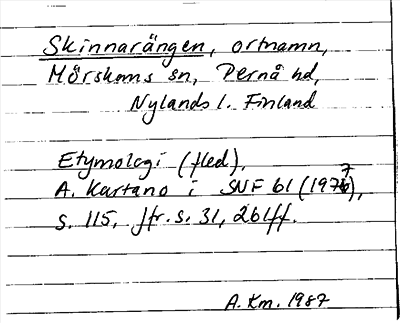 Skinnarängen, ortnamn,
Mörskoms sn, Pernå hd,
Nylands l. Finland
Etymologi (fled),
A. Kartano i SNF 61 (1977),
s. 115, jfr. s. 31, 261ff.
A. Km. 1987